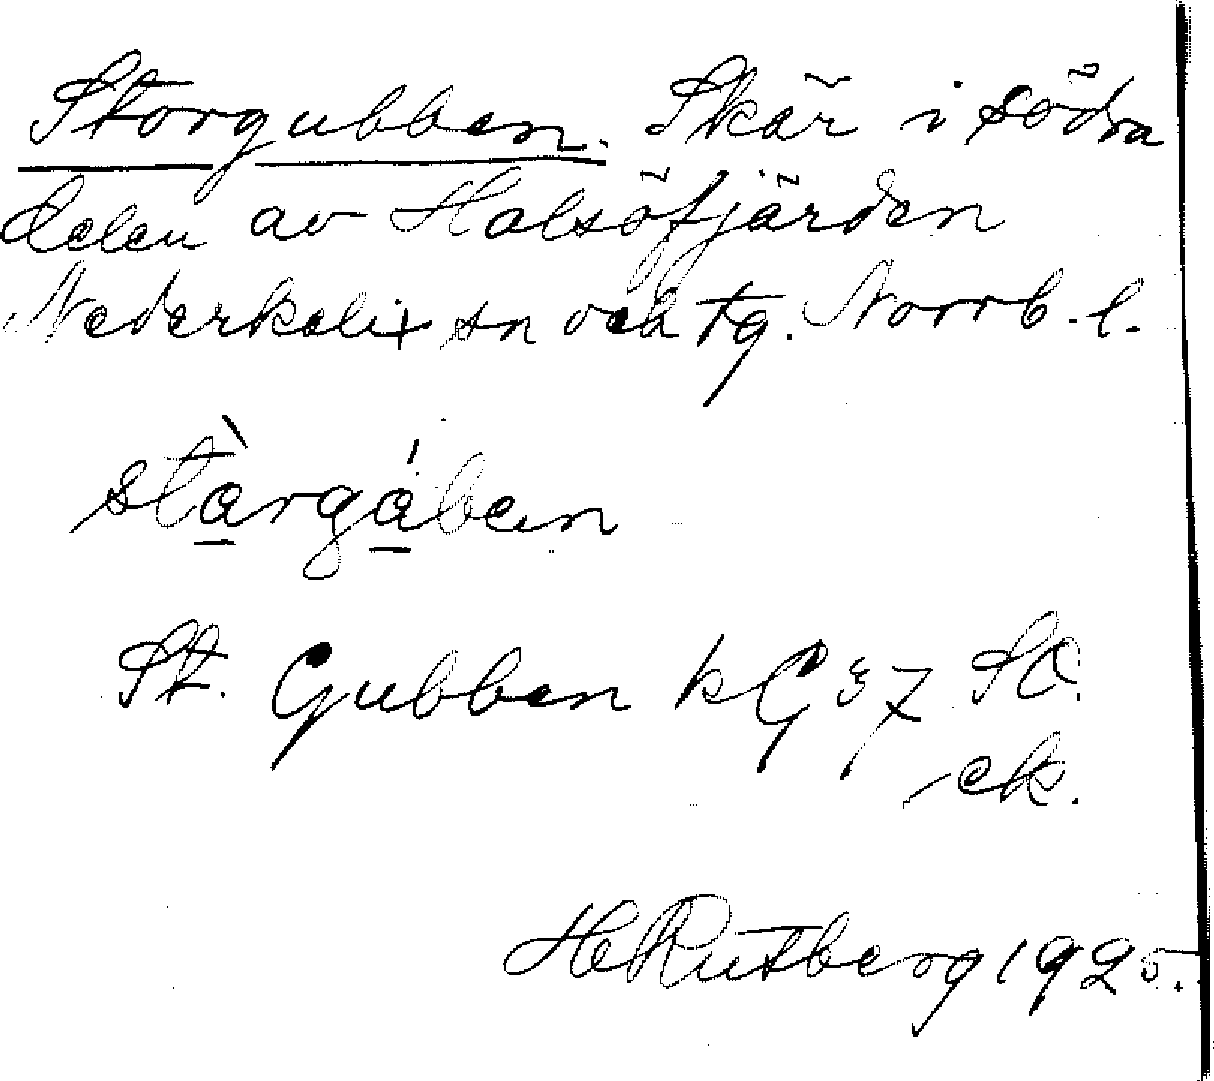 Storgubben. Skär i södra
delen av Halsöfjärden
Nederkalix sn och tg. Norrb. l.
stàrgáben
St. Gubben kG 37 SO.
ek.
H Rutberg 1925.